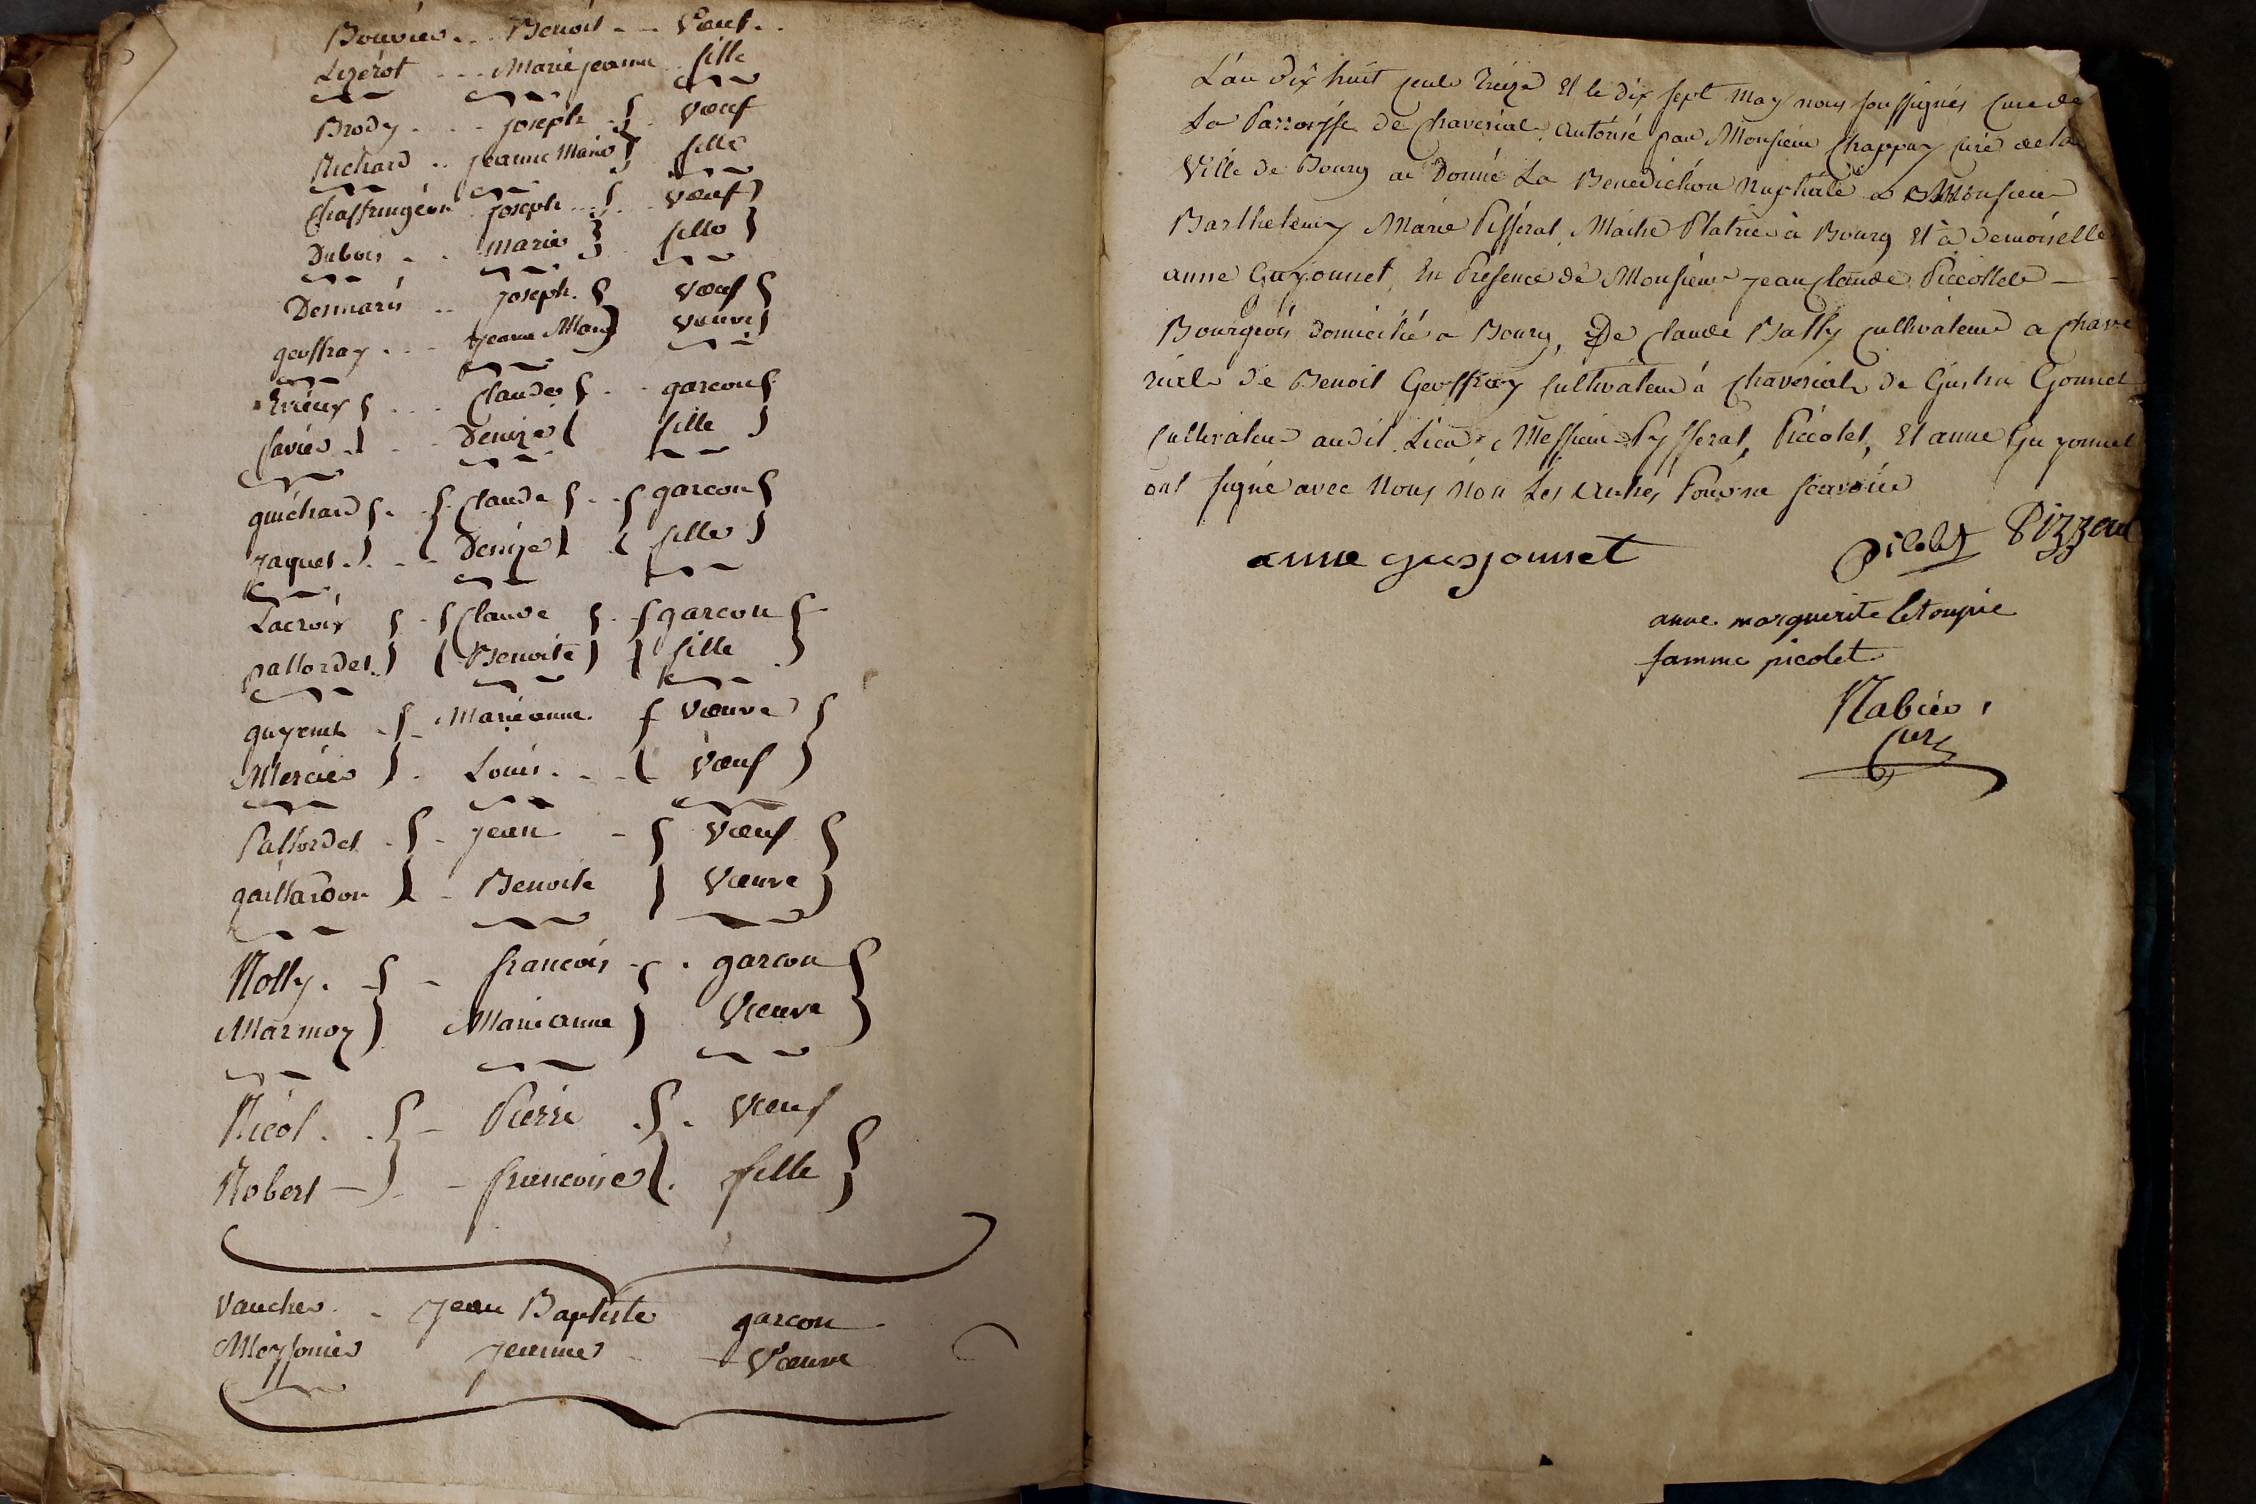 Bouvier - - Benoit - - Vœuf -
Lizérot - - - Marie jeanne fille
Brody - - - joseph - Vœuf
Richard - - jeanne Marie fille
Chaffringéon joseph - - Vœuf
Dubois - - marie fille
Desmaris - - joseph. Vœuf
geoffray - - - jeanne Marie Vœuve
- - - Claude - - garcon
favier - - - Denize fille
guichard - - Claude - - garcon
jaquet - - - Denize fille
Lacroix - Claude - garcon
pallordet. Benoite fille
guyenet - Marieanne. Vœuve
Mercier - Louis - - - Vœuf
Pallordet - - jean - Vœuf
gaillardon - Benoite Vœuve
Rolly. - - francois - . garcon
Marmoy Marieanne Vœuve
Nicol. - - Pierre . . Vœuf
Robert — - - francoise . fille
Vaucher. - jean Baptiste garcon
Meyssonier jeanne - - Vœuve
L'an dix huit cent treize Et le dix sept May nous soussignés Curé de
La Parroisse de Chaveriat autorisé par Monsieur Chappuy Curé de la
Ville de Bourg ai Donné La Benediction Nuptiale a Monsieur
Barthelemy Marie Pisserat, Maitre Platrier à Bourg Et à demoiselle
anne Guyonnet, En Presence de Monsieur jean Claude Piccollet —
Bourgeois domicilié a Bourg, De Claude Bally Cultivateur a Chave
riat de Benoit Geoffray Cultivateur à Chaveriat de Gonnet
Cultivateur audit Lieu, Messieurs Pysserat, Piccolet, Et anne Guyonnet
ont signé avec Nous Non Les autres Pour ne scavoir
anne guyonnet
Picolet Pizzerat
anne marguerite letoupie
famme picolet
Rabier,
Curé